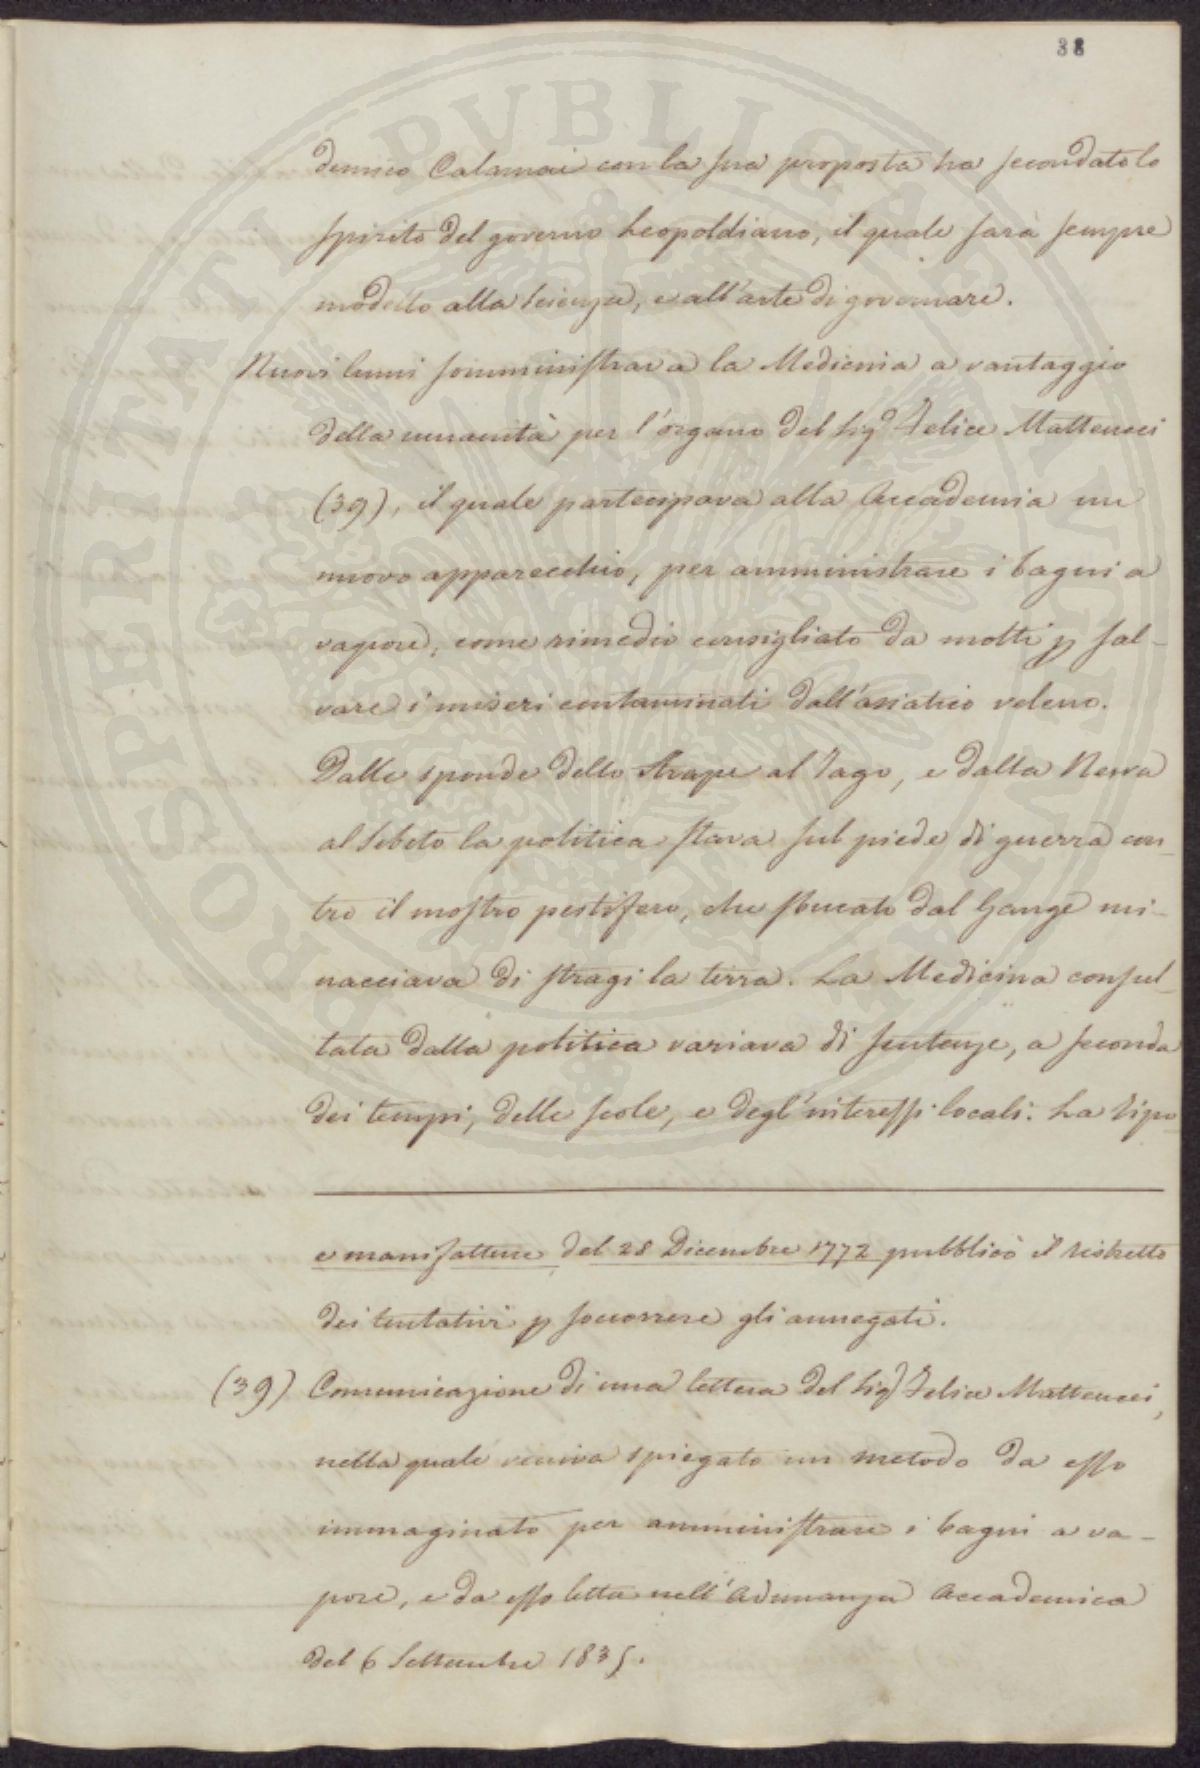 38
demico Calamai con la sua proposta ha secondato lo
spirito del governo Leopoldiano, il quale sarà sempre
modello alla scienza, e all'arte di governare.
Nuovi lumi somministrava la Medicina a vantaggio
della umanità per l'organo del Sig.r Felice Matteucci
(39), il quale partecipava alla Accademia un
nuovo apparecchio, per amministrare i bagni a
vapore, come rimedio consigliato da molti p sal-
vare i miseri contaminati dall'asiatico veleno.
Dalle sponde dello al Tago, e dalla Newa
al Sebeto la politica stava sul piede di guerra con-
tro il mostro pestifero, che sbucato dal Gange mi-
nacciava di stragi la terra. La Medicina consul-
tata dalla politica variava di sentenze, a seconda
dei tempi, delle scole, e degl'interessi locali. La Tipo-
e manifatture del 28 Dicembre 1772 pubblicò il ristretto
dei tentativi p soccorrere gli annegati.
(39) Comunicazione di una lettera del Sig.r Felice Matteucci,
nella quale veniva spiegato un metodo da esso
immaginato per amministrare i bagni a va-
pore, e da esso letta nell'Adunanza Accademica
del 6 Settembre 1835.
PROSPERITATI PUBLICAE AUGENDAE